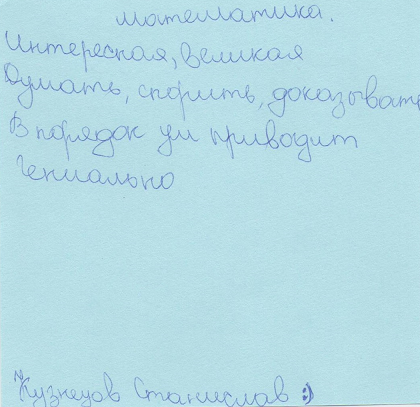 математика.
Интересная, великая
Думать, спорить, доказывать
В порядок ум приводит
Гениально
Кузнецов Станислав :)